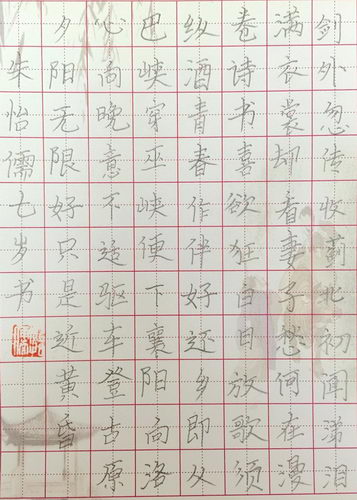 剑外忽传收蓟北初闻涕泪
满衣裳却看妻子愁何在漫
卷诗书喜欲狂白日放歌须
纵酒青春作伴好还乡即从
巴峡穿巫峡便下襄阳向洛
心向晚意不适驱车登古原
夕阳无限好只是近黄昏
朱怡儒七岁书